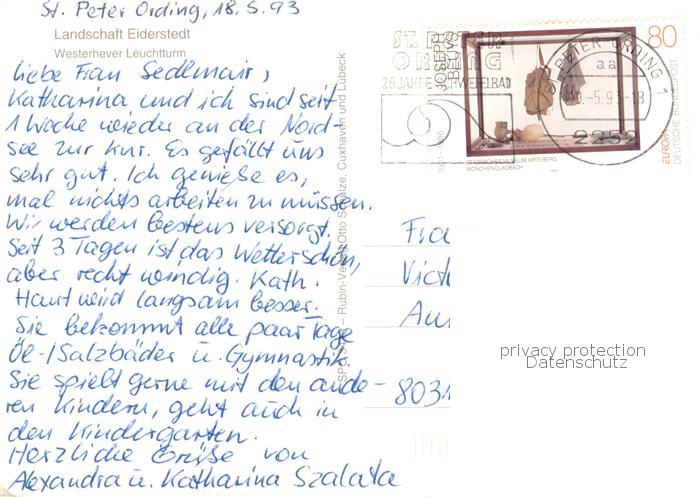 St. Peter Ording, 18.5.93
Landschaft Eiderstedt
Westerhever Leuchtturm
Liebe Frau Sedlmair,
Katharina und ich sind seit
1 Woche wieder an der Nord-
see zur Kur. Es gefällt uns
sehr gut. Ich genieße es,
mal nichts arbeiten zu müssen.
Wir werden bestens versorgt.
Seit 3 Tagen ist das Wetter schön,
aber recht windig. Kath.
Haut wird langsam besser.
Sie bekommt alle paar Tage
Öl-/Salzbäder u. Gymnastik
Sie spielt gerne mit den ande-
ren Kindern, geht auch in
den Kindergarten.
Herzliche Grüße von
Alexandra u. Katharina Szalata
Rubin-Verlag Otto Schulze, Cuxhaven und Lübeck
ST. PETER
ORDING
25 JAHRE SCHWEFELBAD
JOSEPH
BEUYS
1921-1986
80
EUROPA
DEUTSCHE BUNDESPOST
STÄDTISCHES MUSEUM ABTEIBERG
MÖNCHENGLADBACH
ST. PETER-ORDING 1
aa
-5.93-18
2252
Fra
Vict
Au
8031
privacy protection
Datenschutz